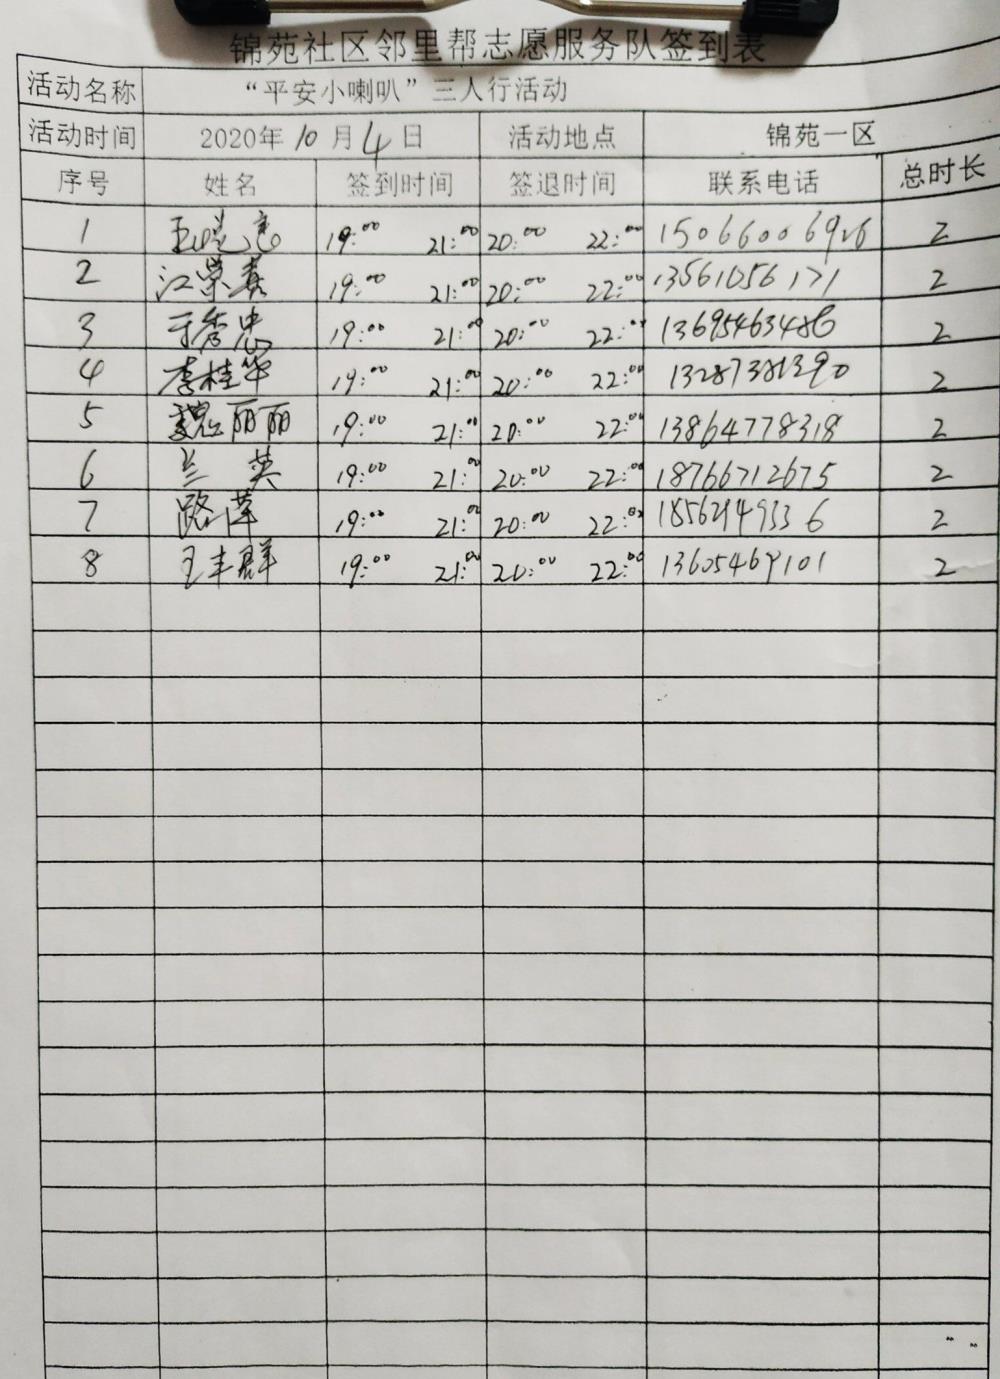 锦苑社区邻里帮志愿服务队签到表
活动名称 “平安小喇叭”三人行活动
活动时间 2020年10月4日 活动地点 锦苑一区
序号 姓名 签到时间 签退时间 联系电话 总时长
1 19:00 21:00 20:00 22:00 15066006926 2
2 江荣真 19:00 21:00 20:00 22:00 13561056171 2
3 于秀忠 19:00 21:00 20:00 22:00 13695463486 2
4 李桂华 19:00 21:00 20:00 22:00 2
5 魏丽丽 19:00 21:00 20:00 22:00 13864778318 2
6 兰英 19:00 21:00 20:00 22:00 18766712675 2
7 路萍 19:00 21:00 20:00 22:00 2
8 王丰群 19:00 21:00 20:00 22:00 13605469101 2